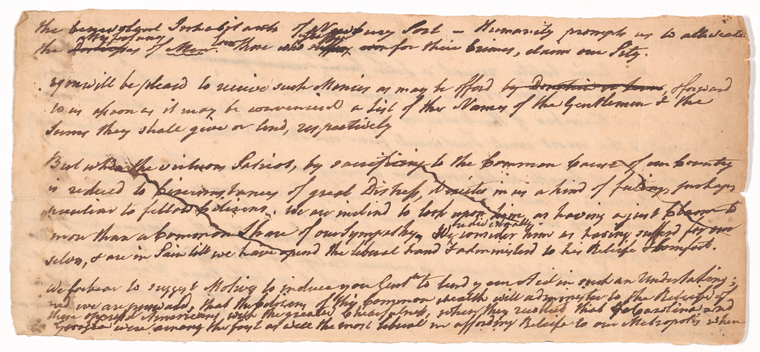 the benevolent Inhabitants of Newbury Port – Humanity prompts us to alleviate
the Distresses of Men. those who suffer, even for their Crimes, claim our Pity.
you will be pleasd to receive such Monies as may be offerd by Donation or Loan, & forward
to us as soon as it may be convenient a List of the Names of the Gentlemen & the
Sums they shall give or lend, respectively
But when the virtuous Patriot, by sacrificing to the Common Cause of our Country
is reducd to Circumstances of great Distress, it excites in us a kind of feeling, perhaps
peculiar to fellow Citizens. We are inclind to look upon him as having a just Claim to
more than a Common Share of our Sympathy. We consider him as having sufferd for our
selves, & are in Pain till we have opend the liberal hand & administerd to his Relief & Comfort.
We forbear to suggest Motives to induce you Gentn to lend your Aid in such an Undertaking;
and we are perswaded, that the Citizens of this Common wealth will administer to the Relief of
these oppressd Americans with the greater Chearfulness, when they recollect that So Carolina and
Georgia were among the first as well the most liberal in affording Relief to our Metropolis when